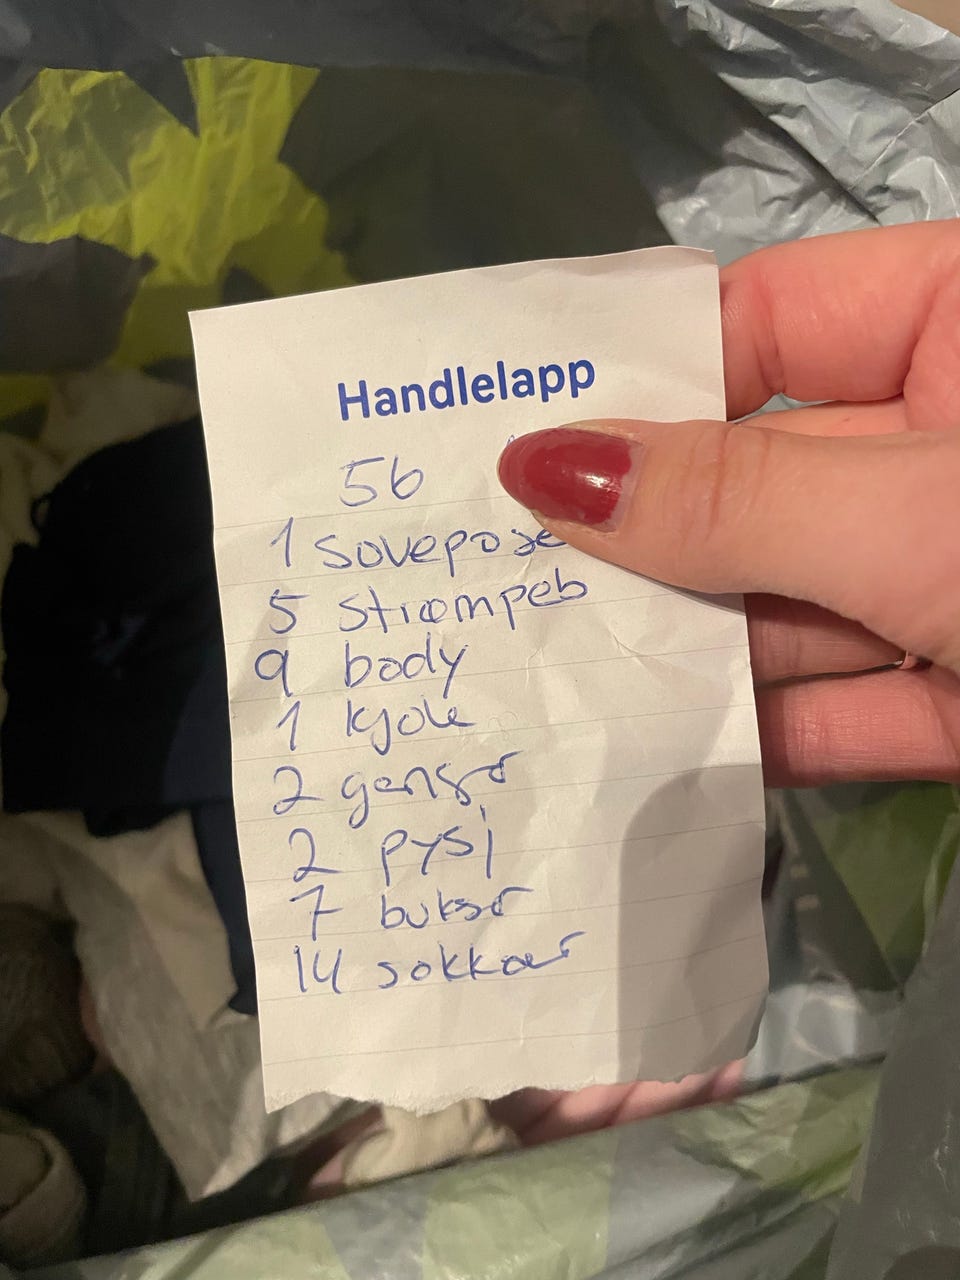 Handlelapp
56
1 sovepose
5 strømpeb
9 body
1 kjole
2 genser
2 pysj
7 bukser
14 sokkar